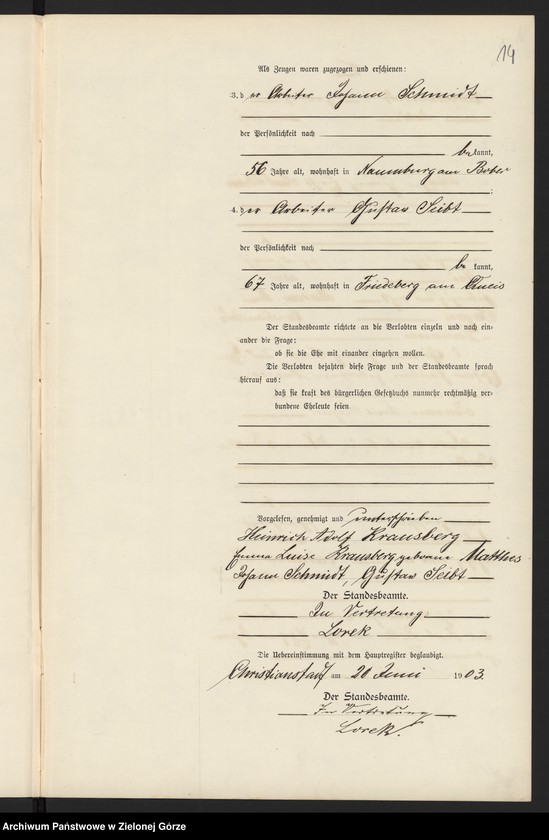 14
Als Zeugen waren zugezogen und erschienen:
3. der Arbeiter Johann Schmidt
der Persönlichkeit nach
bekannt,
56 Jahre alt, wohnhaft in Naumburg am Bober
;
4. der Arbeiter Gustav Seibt
der Persönlichkeit nach
be kannt,
67 Jahre alt, wohnhaft in Friedeberg am Queis
Der Standesbeamte richtete an die Verlobten einzeln und nach ein-
ander die Frage:
ob sie die Ehe mit einander eingehen wollen.
Die Verlobten bejahten diese Frage und der Standesbeamte sprach
hierauf aus:
daß sie kraft des bürgerlichen Gesetzbuchs nunmehr rechtmäßig ver-
bundene Eheleute seien.
Vorgelesen, genehmigt und unterschrieben
Heinrich Adolf Krausberg
Emma Luise Krausberg geborene Matthes
Johann Schmidt, Gustav Seibt
Der Standesbeamte.
In Vertretung
Lorek
Die Uebereinstimmung mit dem Hauptregister beglaubigt.
Christianstadt am 20 Juni 1903.
Der Standesbeamte.
In Vertretung
Lorek.
Archiwum Państwowe w Zielonej Górze